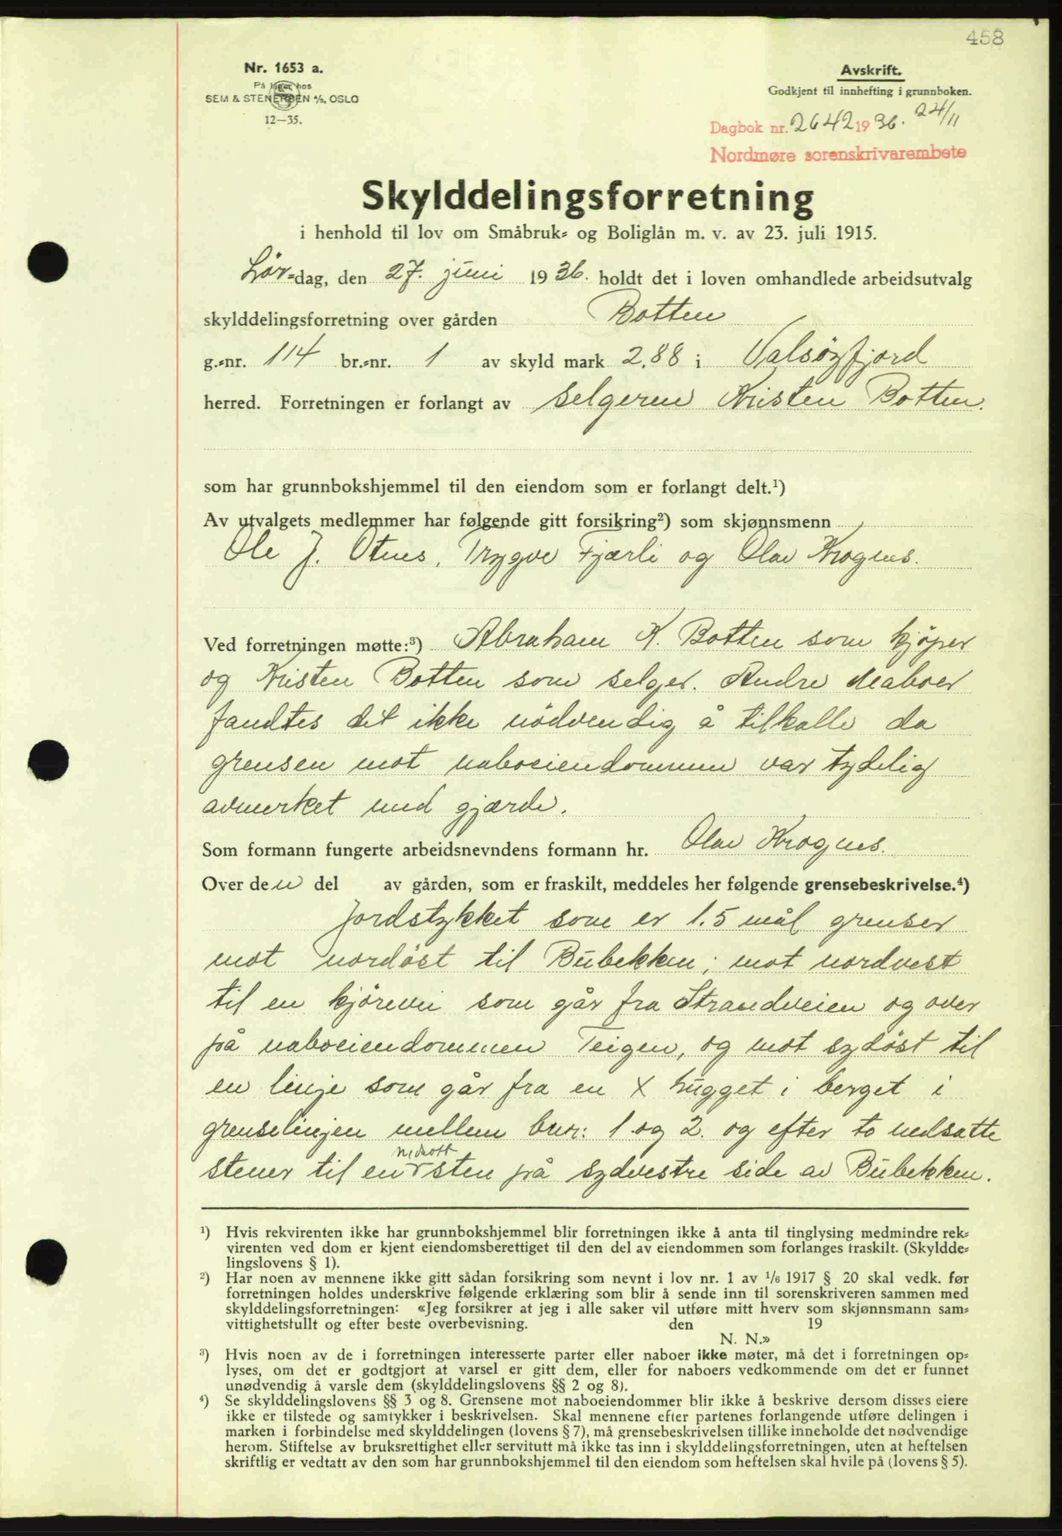 458
Nr. 1653 a.
På lager hos
SEM & STENERSEN A/S, OSLO
12—35.
Avskrift.
Godkjent til innhefting i grunnboken.
Dagbok nr. 2642 1936. 24/11
Nordmøre sorenskrivarembete
Skylddelingsforretning
i henhold til lov om Småbruk= og Boliglån m. v. av 23. juli 1915.
Lør=dag, den 27. juni 1936. holdt det i loven omhandlede arbeidsutvalg
skylddelingsforretning over gården Botten
g.=nr. 114 br.=nr. 1 av skyld mark 2,88 i Valsøyfjord
herred. Forretningen er forlangt av selgeren Kristen Botten.
som har grunnbokshjemmel til den eiendom som er forlangt delt.¹)
Av utvalgets medlemmer har følgende gitt forsikring²) som skjønnsmenn
Ole J. Otnes, Trygve Fjærli og Olav Krognes.
Ved forretningen møtte:³) Abraham K. Botten som kjøper
og Kristen Botten som selger. Andre naboer
fandtes det ikke nödvendig å tilkalle da
grensen mot naboeiendommene var tydelig
avmerket med gjærde.
Som formann fungerte arbeidsnevndens formann hr. Olav Krognes.
Over den del av gården, som er fraskilt, meddeles her følgende grensebeskrivelse.⁴)
Jordstykket som er 1.5 mål grenser
mot nordöst til Bübekken; mot nordvest
til en kjörevei som går fra Strandveien og over
på naboeiendommen Teigen, og mot sydöst til
en linje som går fra en X hugget i berget i
grenselinjen mellem bnr: 1 og 2. og efter to nedsatte
stener til en nedsatt sten på sydvestre side av Bübekken.
¹) Hvis rekvirenten ikke har grunnbokshjemmel blir forretningen ikke å anta til tinglysing medmindre rek=
virenten ved dom er kjent eiendomsberettiget til den del av eiendommen som forlanges fraskilt. (Skyldde=
lingslovens § 1).
²) Har noen av mennene ikke gitt sådan forsikring som nevnt i lov nr. 1 av 1/6 1917 § 20 skal vedk. før
forretningen holdes underskrive følgende erklæring som blir å sende inn til sorenskriveren sammen med
skylddelingsforretningen: «Jeg forsikrer at jeg i alle saker vil utføre mitt hverv som skjønnsmann sam=
vittighetsfullt og efter beste overbevisning. den 19
N. N.»
³) Hvis noen av de i forretningen interesserte parter eller naboer ikke møter, må det i forretningen op=
lyses, om det er godtgjort at varsel er gitt dem, eller for naboers vedkommende om det er funnet
unødvendig å varsle dem (skylddelingslovens §§ 2 og 8).
⁴) Se skylddelingslovens §§ 3 og 8. Grensene mot naboeiendommer blir ikke å beskrive dersom disses eiere
ikke er tilstede og samtykker i beskrivelsen. Skal mennene efter partenes forlangende utføre delingen i
marken i forbindelse med skylddelingen (lovens § 7), må grensebeskrivelsen tillike inneholde det nødvendige
herom. Stiftelse av bruksrettighet eller servitutt må ikke tas inn i skylddelingsforretningen, uten at heftelsen
skriftlig er vedtatt av den som har grunnbokshjemmel til den eiendom som heftelsen skal hvile på (lovens § 5).